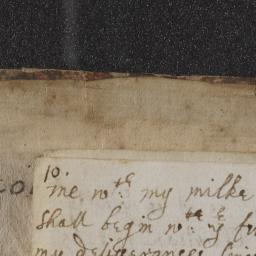 10.
me wth my milke
shall begin wth ye
my deliverances